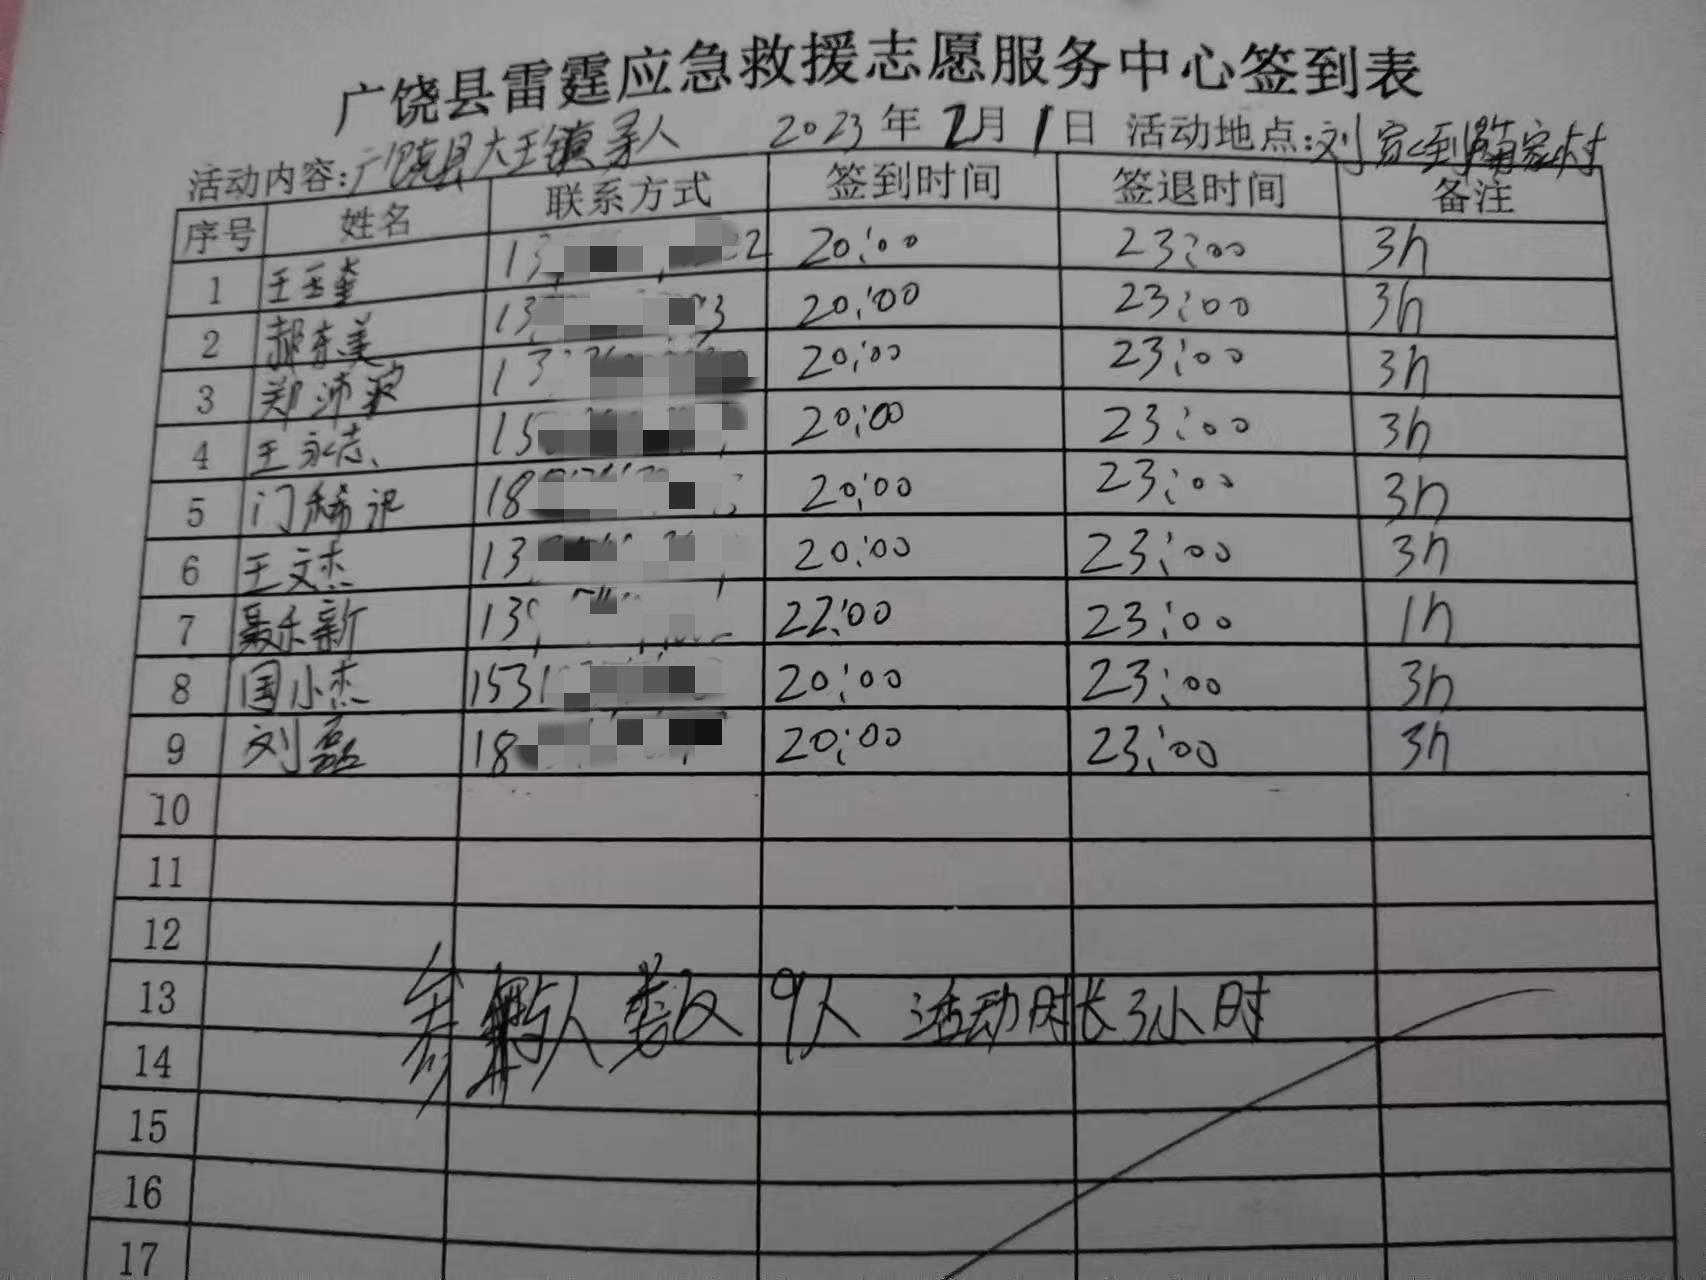 广饶县雷霆应急救援志愿服务中心签到表
活动内容:广饶县大王镇寻人 2023年2月1日 活动地点:刘家 到 家村
序号 姓名 联系方式 签到时间 签退时间 备注
1 王玉奎 13 2 20:00 23:00 3h
2 郝东美 13 3 20:00 23:00 3h
3 郑沛 13 20:00 23:00 3h
4 王永志 15 20:00 23:00 3h
5 门 18 20:00 23:00 3h
6 王文杰 13 20:00 23:00 3h
7 聂乐新 13 22:00 23:00 1h
8 国小杰 1531 20:00 23:00 3h
9 刘磊 18 20:00 23:00 3h
10
11
12
13 参 人数 9人 活动时长3小时
14
15
16
17